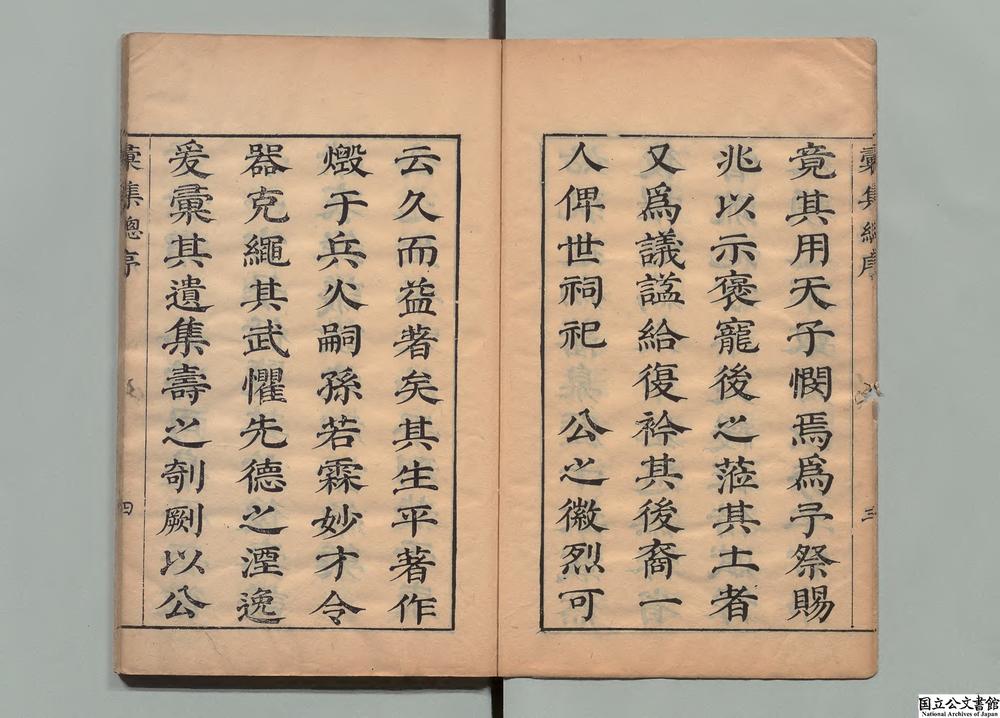 彙集總序
三
竟其用天子憫焉爲予祭賜
兆以示褒寵後之蒞其土者
又爲議謚給復衿其後裔一
人俾世祠祀 公之徽烈可
云久而益著矣其生平著作
燬于兵火嗣孫若霖妙才令
器克繩其武懼先德之湮逸
爰彙其遺集壽之剞劂以公
彙集總序
四
国立公文書館
National Archives of Japan